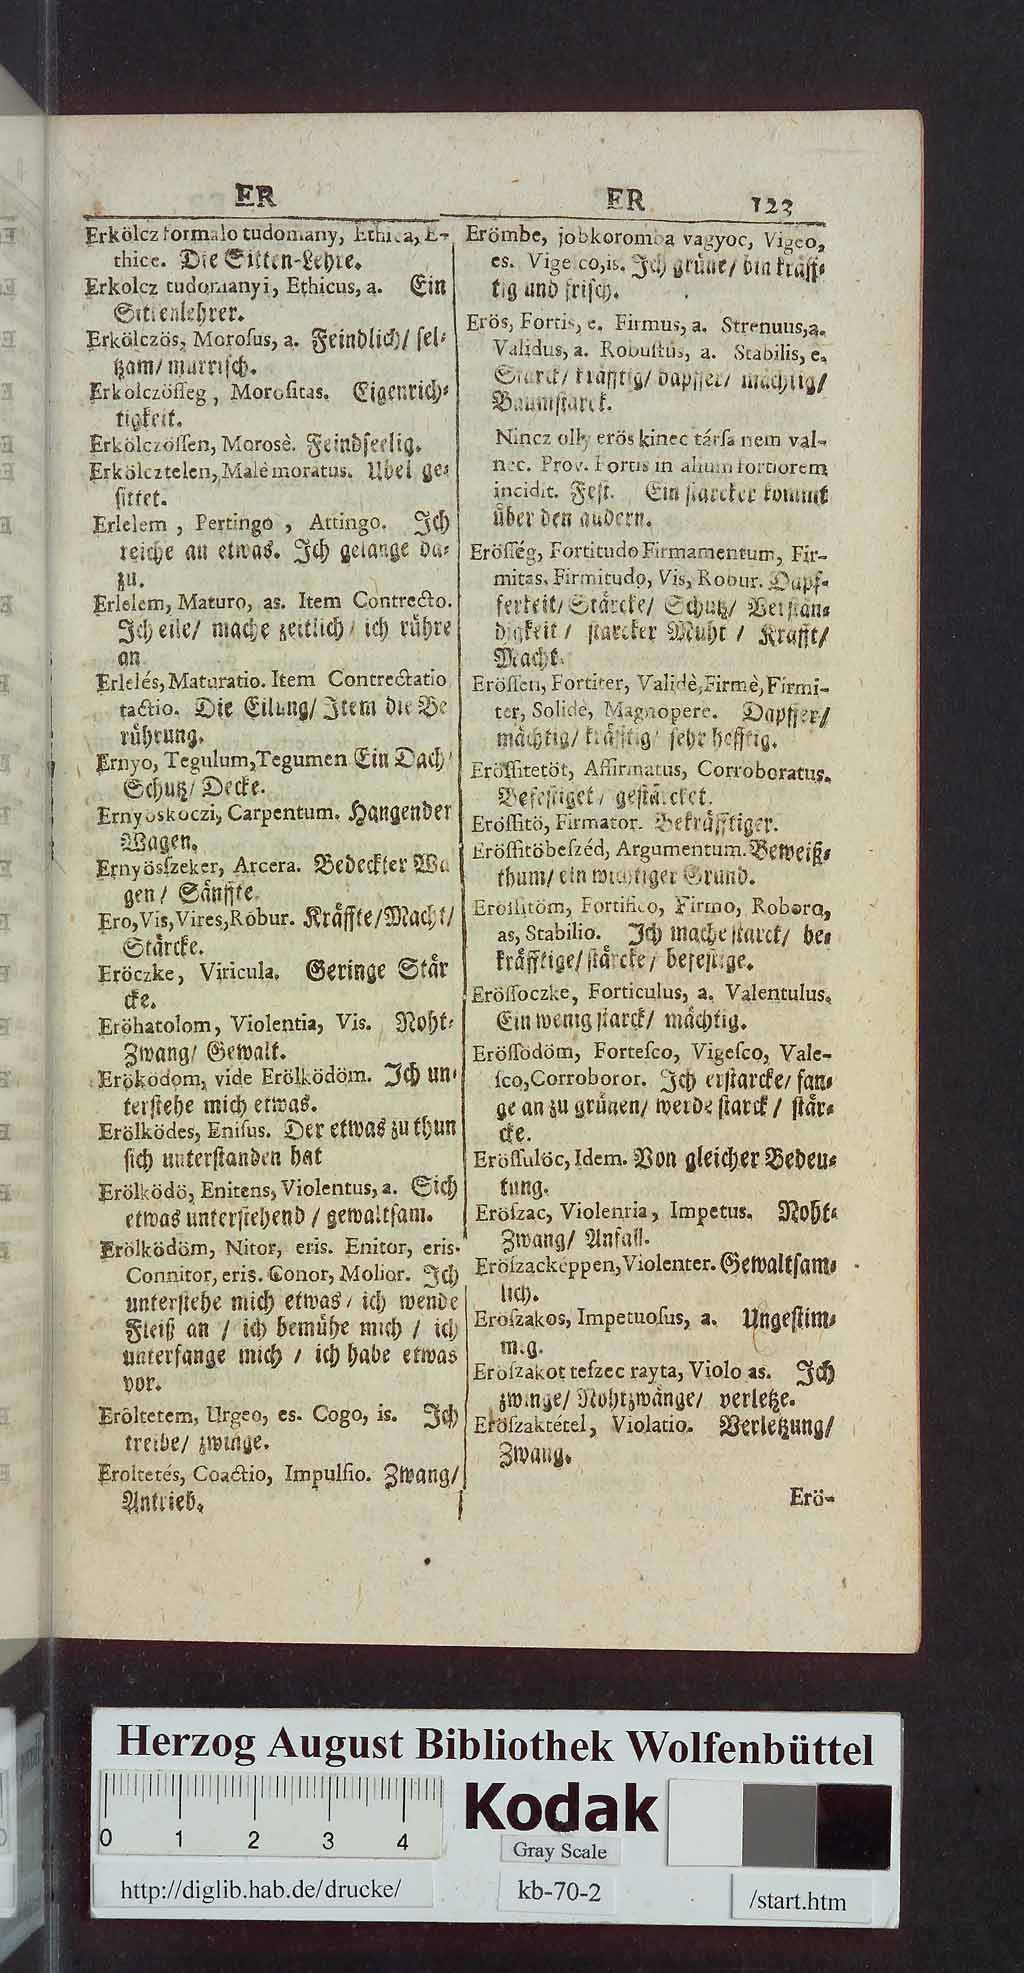 ER
Erkölcz formalo tudomany, Ethica, E-
thice. Die Sitten-Lehre.
Erkolcz tudomanyi, Ethicus, a. Ein
Sittenlehrer.
Erkölczös, Moroſus, a. Feindlich/ ſel-
tzam/ murriſch.
Erkolczöſſeg, Moroſitas. Eigenrich-
tigkeit.
Erkölczöſſen, Morosè. Feindſeelig.
Erkölcztelen, Malè moratus. Ubel ge-
ſittet.
Erlelem, Pertingo, Attingo. Ich
reiche an etwas. Ich gelange da-
zu.
Erlelem, Maturo, as. Item Contrecto.
Ich eile/ mache zeitlich/ ich rühre
an
Erlelés, Maturatio. Item Contrectatio
tactio. Die Eilung/ Item die Be
rührung.
Ernyo, Tegulum, Tegumen Ein Dach/
Schutz/ Decke.
Ernyöskoczi, Carpentum. Hangender
Wagen.
Ernyösſzeker, Arcera. Bedeckter Wa
gen/ Sänffte.
Ero, Vis, Vires, Robur. Kräffte/ Macht/
Stärcke.
Eröczke, Viricula. Geringe Stär
cke.
Eröhatolom, Violentia, Vis. Noht-
Zwang/ Gewalt.
Erökódom, vide Erölködöm. Ich un-
terſtehe mich etwas.
Erölködes, Eniſus. Der etwas zu thun
ſich unterſtanden hat
Erölködö, Enitens, Violentus, a. Sich
etwas unterſtehend / gewaltſam.
Erölködöm, Nitor, eris. Enitor, eris.
Connitor, eris. Conor, Molior. Ich
unterſtehe mich etwas / ich wende
Fleiß an / ich bemühe mich / ich
unterfange mich / ich habe etwas
vor.
Eröltetem, Urgeo, es. Cogo, is. Ich
treibe/ zwinge.
Eroltetés, Coactio, Impulſio. Zwang/
Antrieb.
ER 123
Erömbe, jobkoromba vagyoc, Vigeo,
es. Vigeſco, is. Ich grüne/ bin kräff-
tig und friſch.
Erös, Fortis, e. Firmus, a. Strenuus, a.
Validus, a. Robuſtus, a. Stabilis, e.
Starck/ kräfftig/ dapffer/ mächtig/
Baumſtarck.
Nincz olly erös kinec társa nem val-
nec. Prov. Fortis in alium fortiorem
incidit. Feſt. Ein ſtarcker kommt
über den andern.
Eröſſég, Fortitudo Firmamentum, Fir-
mitas, Firmitudo, Vis, Robur. Dapf-
ferkeit/ Stärcke/ Schutz/ Beſtän-
digkeit / ſtarcker Muht / Krafft/
Macht.
Eröſſen, Fortiter, Validè, Firmè, Firmi-
ter, Solidè, Magnopere. Dapffer/
mächtig/ kräfftig/ ſehr hefftig.
Eröſſitetöt, Affirmatus, Corroboratus.
Befeſtiget/ geſtärcket.
Eröſſitö, Firmator. Bekräfftiger.
Eröſſitöbeſzéd, Argumentum. Beweiß-
thum/ ein wichtiger Grund.
Eröſſitöm, Fortifico, Firmo, Roboro,
as, Stabilio. Ich mache ſtarck/ be-
kräfftige/ ſtärcke/ befeſtige.
Eröſſoczke, Forticulus, a. Valentulus.
Ein wenig ſtarck/ mächtig.
Eröſſödöm, Forteſco, Vigeſco, Vale-
ſco, Corroboror. Ich erſtarcke/ fan-
ge an zu grünen/ werde ſtarck / ſtär-
cke.
Eröſſulöc, Idem. Von gleicher Bedeu-
tung.
Eröſzac, Violentia, Impetus. Noht-
Zwang/ Anfall.
Eröſzackeppen, Violenter. Gewaltſam-
lich.
Eröſzakos, Impetuoſus, a. Ungeſtim-
mig.
Eröſzakot teſzec rayta, Violo as. Ich
zwinge/ Nohtzwänge/ verletze.
Eröſzaktétel, Violatio. Verletzung/
Zwang.
Erö-
Herzog August Bibliothek Wolfenbüttel
0 1 2 3 4
Kodak
Gray Scale
http://diglib.hab.de/drucke/
kb-70-2
/start.htm